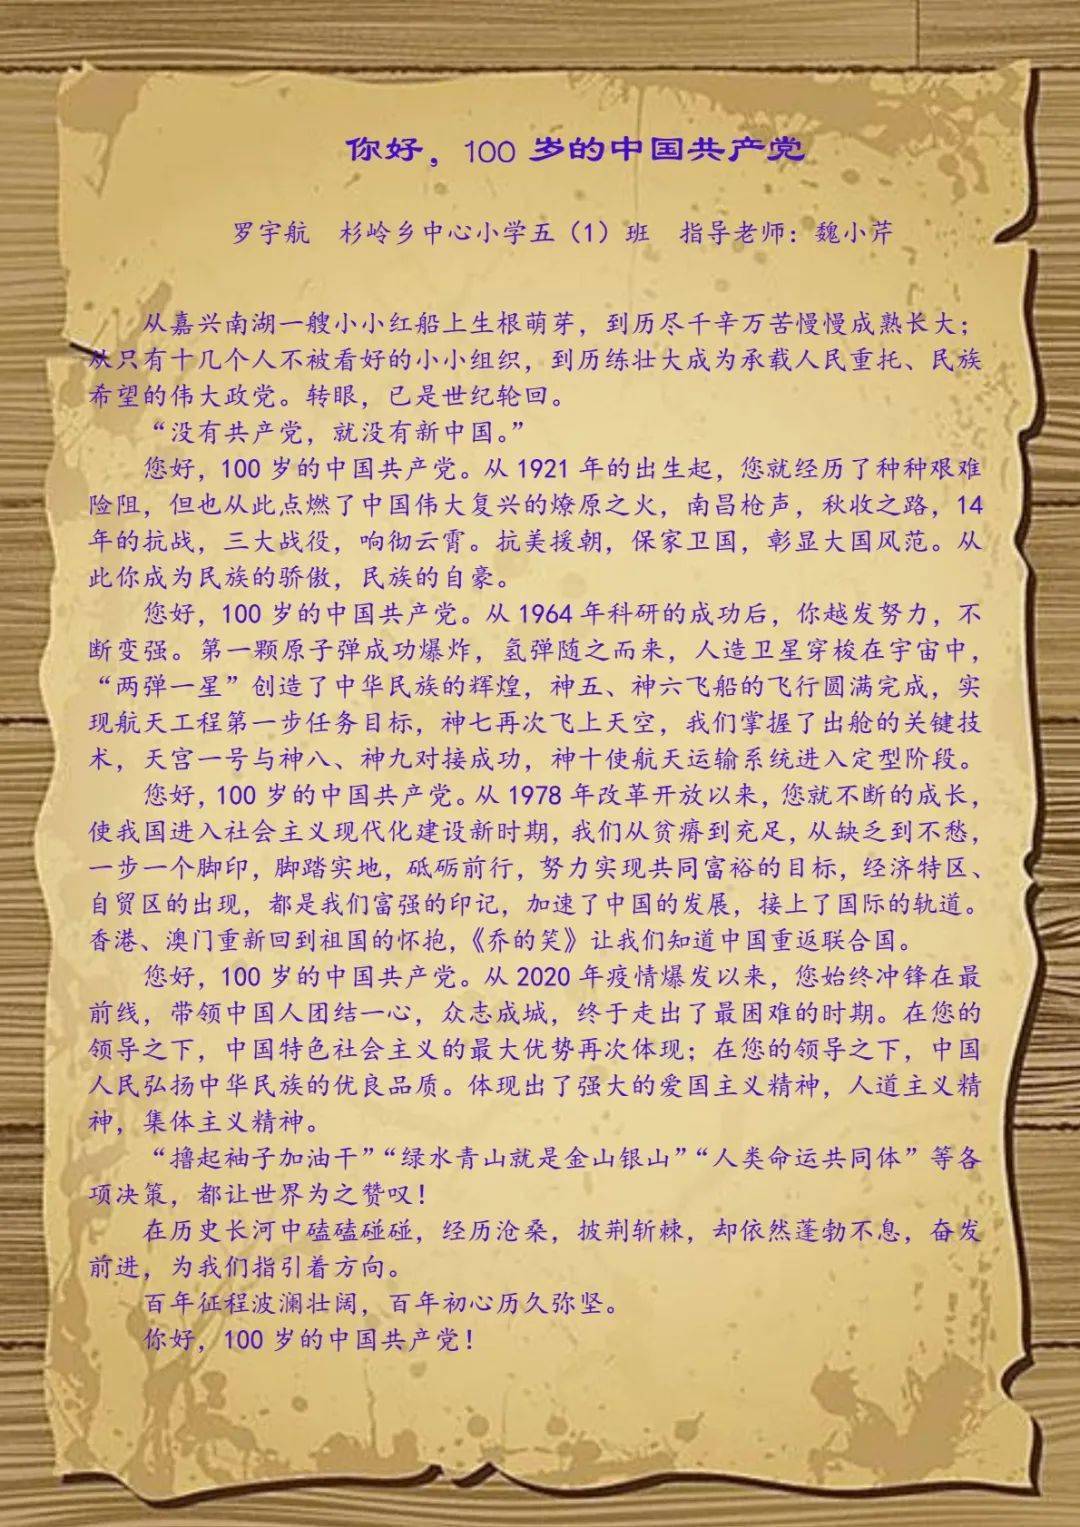 你好，100 岁的中国共产党
罗宇航 杉岭乡中心小学五（1）班 指导老师：魏小芹
从嘉兴南湖一艘小小红船上生根萌芽，到历尽千辛万苦慢慢成熟长大；
从只有十几个人不被看好的小小组织，到历练壮大成为承载人民重托、民族
希望的伟大政党。转眼，已是世纪轮回。
“没有共产党，就没有新中国。”
您好，100 岁的中国共产党。从 1921 年的出生起，您就经历了种种艰难
险阻，但也从此点燃了中国伟大复兴的燎原之火，南昌枪声，秋收之路，14
年的抗战，三大战役，响彻云霄。抗美援朝，保家卫国，彰显大国风范。从
此你成为民族的骄傲，民族的自豪。
您好，100 岁的中国共产党。从 1964 年科研的成功后，你越发努力，不
断变强。第一颗原子弹成功爆炸，氢弹随之而来，人造卫星穿梭在宇宙中，
“两弹一星”创造了中华民族的辉煌，神五、神六飞船的飞行圆满完成，实
现航天工程第一步任务目标，神七再次飞上天空，我们掌握了出舱的关键技
术，天宫一号与神八、神九对接成功，神十使航天运输系统进入定型阶段。
您好，100 岁的中国共产党。从 1978 年改革开放以来，您就不断的成长，
使我国进入社会主义现代化建设新时期，我们从贫瘠到充足，从缺乏到不愁，
一步一个脚印，脚踏实地，砥砺前行，努力实现共同富裕的目标，经济特区、
自贸区的出现，都是我们富强的印记，加速了中国的发展，接上了国际的轨道。
香港、澳门重新回到祖国的怀抱，《乔的笑》让我们知道中国重返联合国。
您好，100 岁的中国共产党。从 2020 年疫情爆发以来，您始终冲锋在最
前线，带领中国人团结一心，众志成城，终于走出了最困难的时期。在您的
领导之下，中国特色社会主义的最大优势再次体现；在您的领导之下，中国
人民弘扬中华民族的优良品质。体现出了强大的爱国主义精神，人道主义精
神，集体主义精神。
“撸起袖子加油干”“绿水青山就是金山银山”“人类命运共同体”等各
项决策，都让世界为之赞叹！
在历史长河中磕磕碰碰，经历沧桑，披荆斩棘，却依然蓬勃不息，奋发
前进，为我们指引着方向。
百年征程波澜壮阔，百年初心历久弥坚。
你好，100 岁的中国共产党！